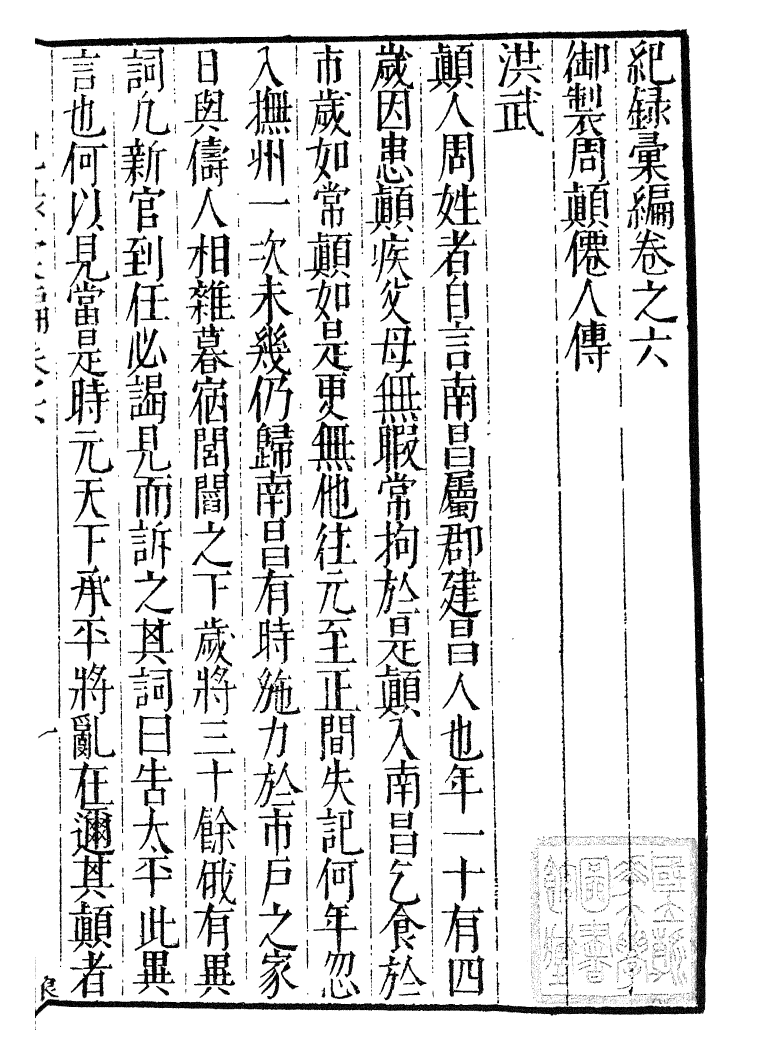 紀録彙編卷之六
御製周顛僊人傳
洪武
顛人周姓者自言南昌屬郡建昌人也年一十有四
歲因患顛疾父母無暇常拘於是顛入南昌乞食於
市歲如常顛如是更無他往元至正間失記何年忽
入撫州一次未幾仍歸南昌有時施力於市戶之家
日與儔人相雜暮宿閭閻之下歲將三十餘俄有異
詞凢新官到任必謁見而訴之其詞曰告太平此異
言也何以見當是時元天下承平將亂在邇其顛者